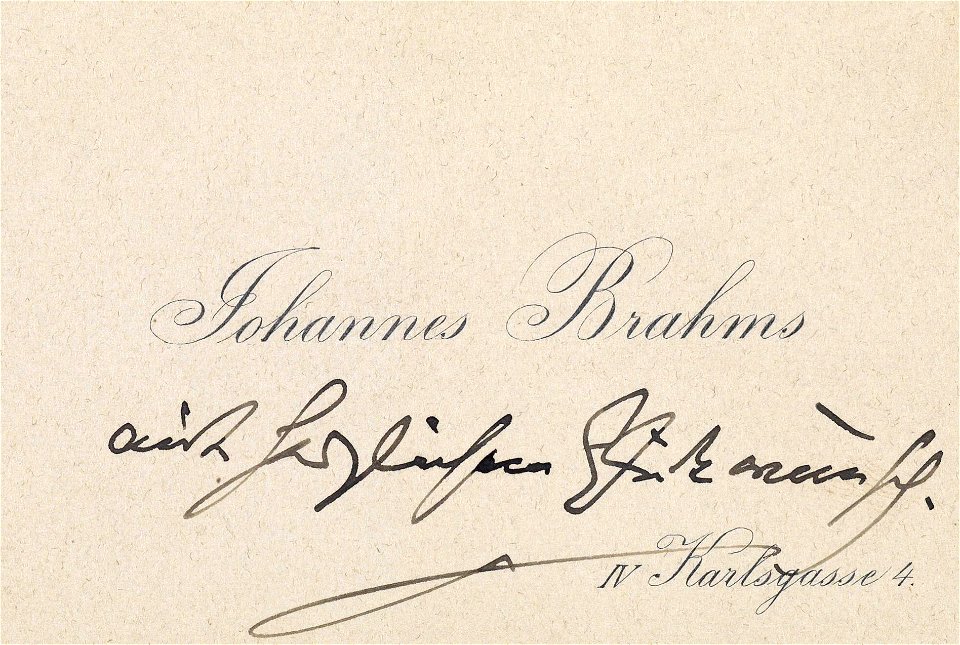 Johannes Brahms
mit herzlichem Glückwunsch.
IV Karlsgasse 4.